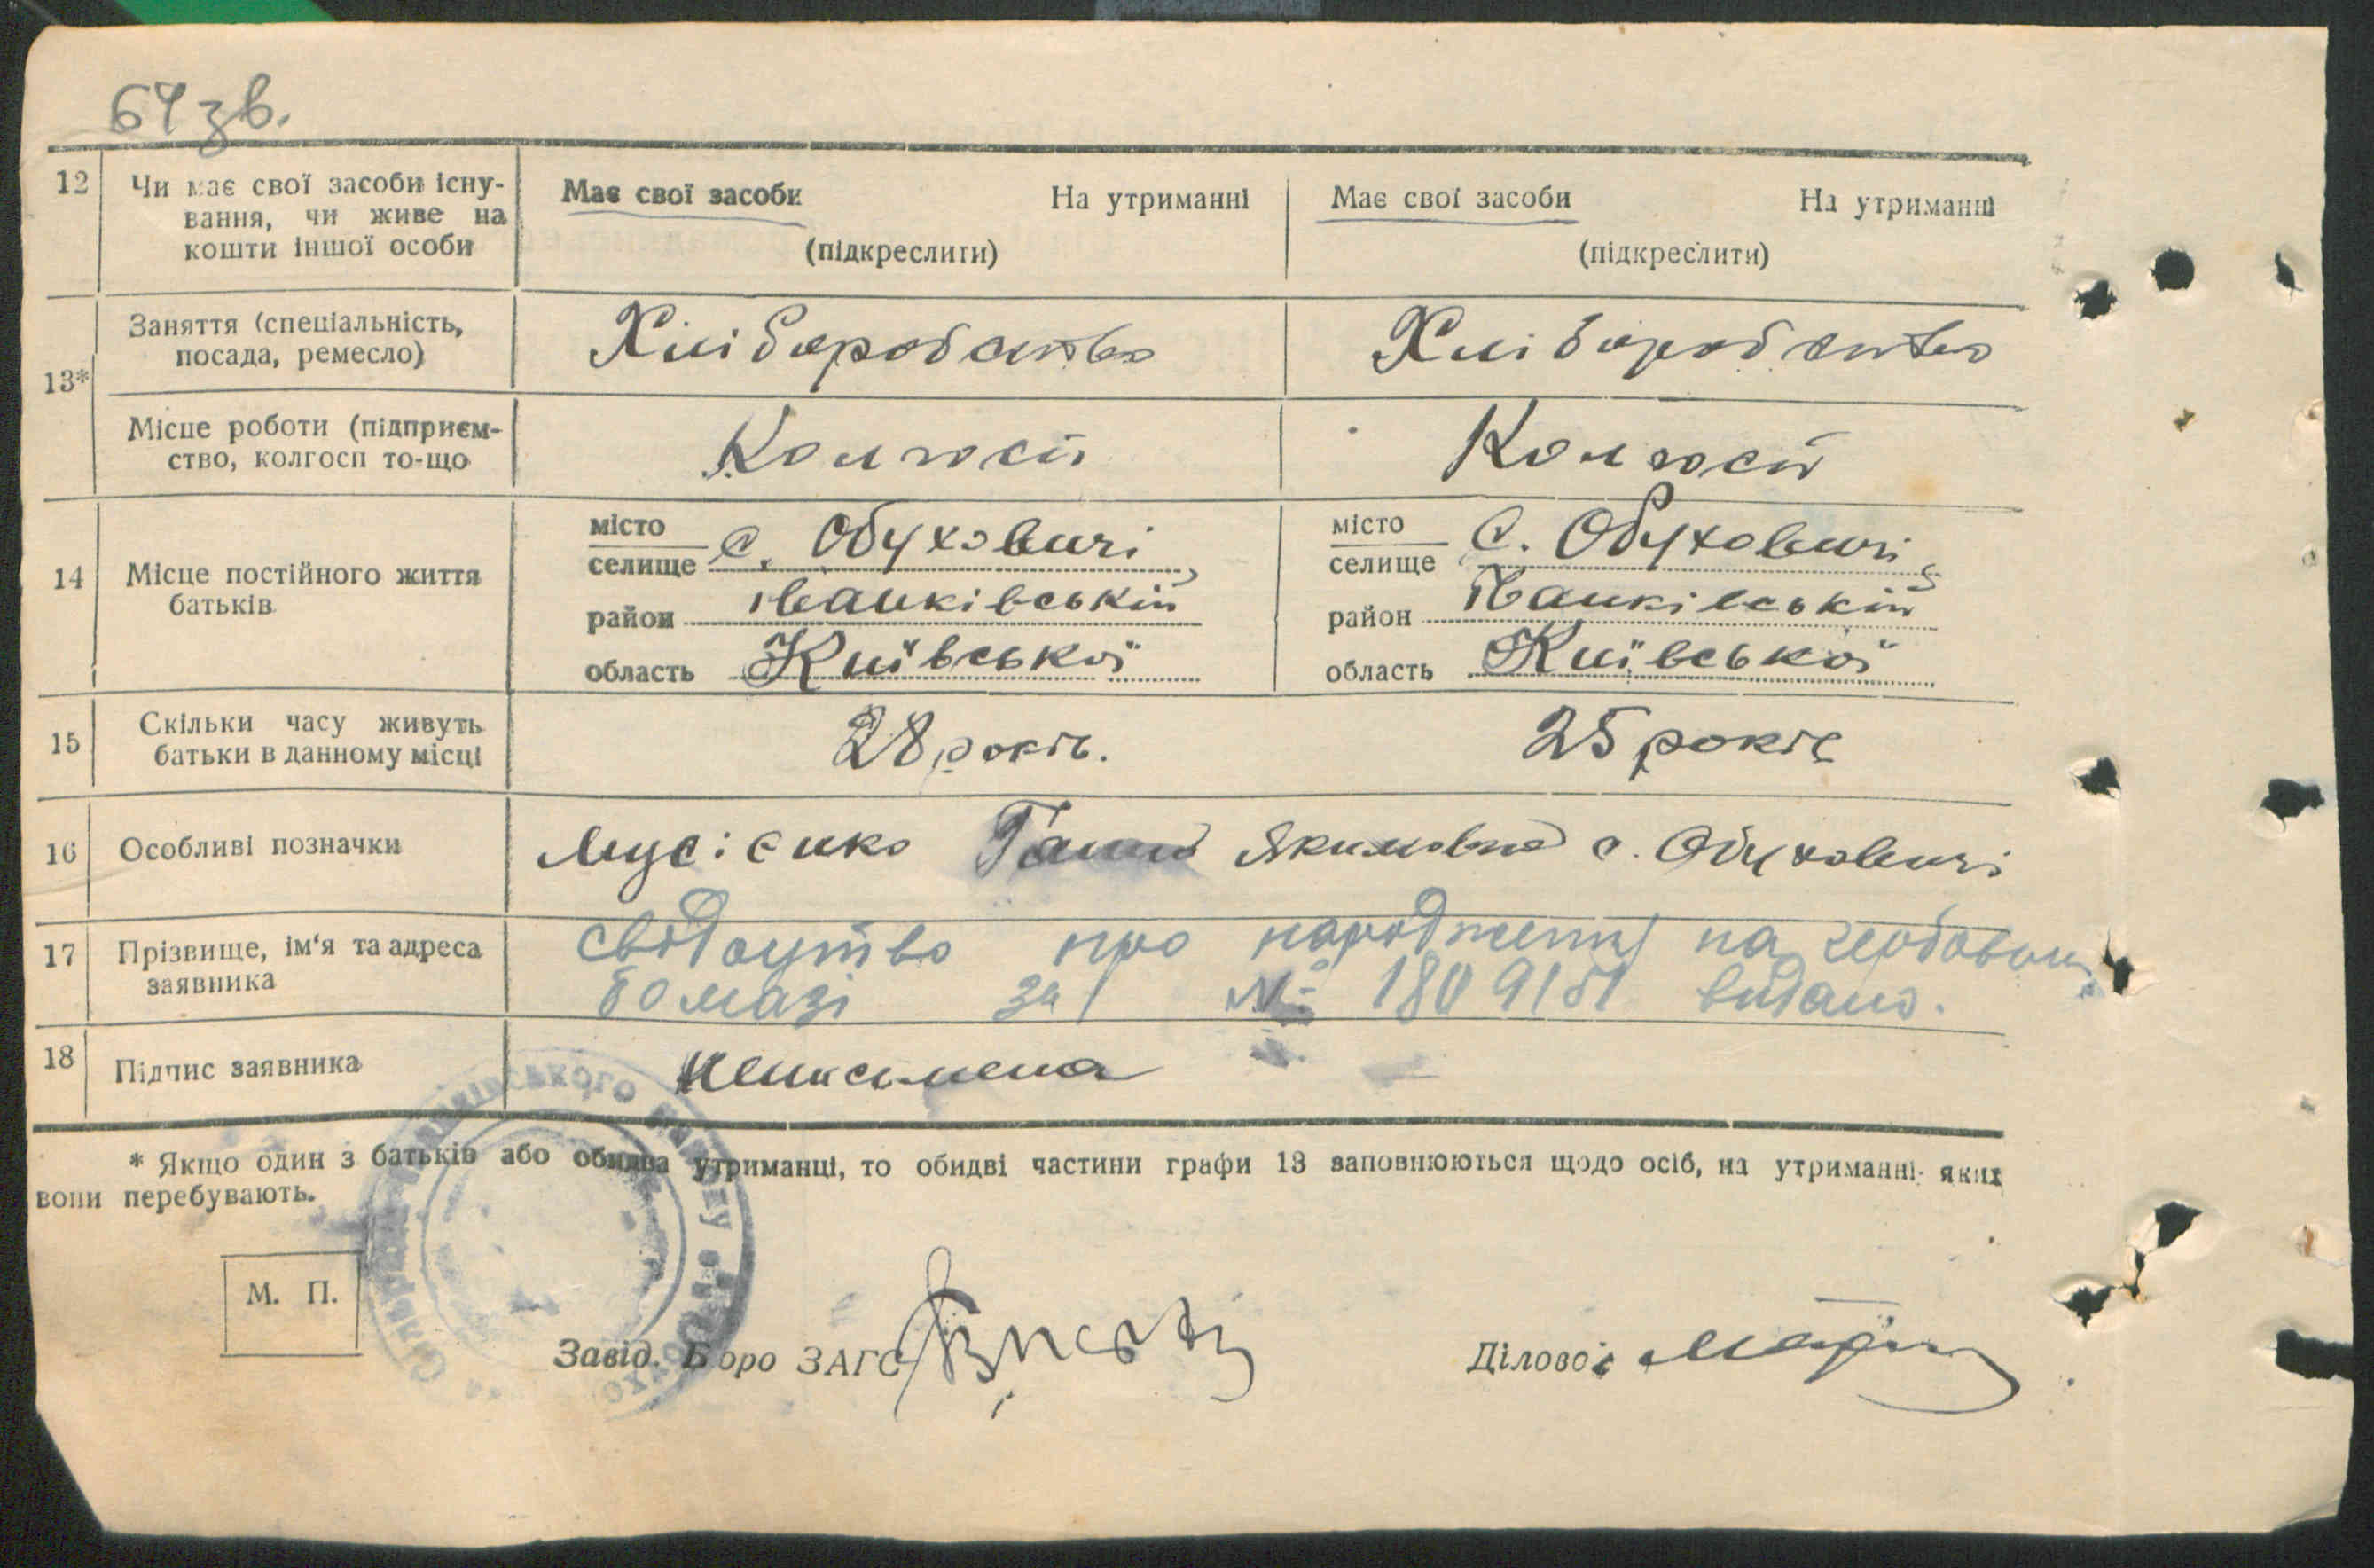 64 зв.
12 Чи має свої засоби існу-
вання, чи живе на
кошти іншої особи
Має свої засоби На утриманні
(підкреслити)
Має свої засоби На утриманні
(підкреслити)
13*
Заняття (спеціальність,
посада, ремесло)
Хліборобство
Хліборобство
Місце роботи (підприєм-
ство, колгосп то-що
Колгосп
Колгосп
14 Місце постійного життя
батьків
місто
селище с. Обуховичі,
район Іванківський
область Київської
місто
селище С. Обуховичі,
район Іванківський
область Київської
15 Скільки часу живуть
батьки в данному місці
28 років.
25 років
16 Особливі позначки
Мусієнко Ганна Якимовна с. Обуховичі
17 Прізвище, ім'я та адреса
заявника
свідоцтво про народження на гербовом
бомазі за № 1809151 видано.
18 Підпис заявника
Неписьмена
* Якщо один з батьків або обидва утриманці, то обидві частини графи 13 заповнюються щодо осіб, на утриманні яких
вони перебувають.
М. П.
Завід. Бюро ЗАГС
Діловод